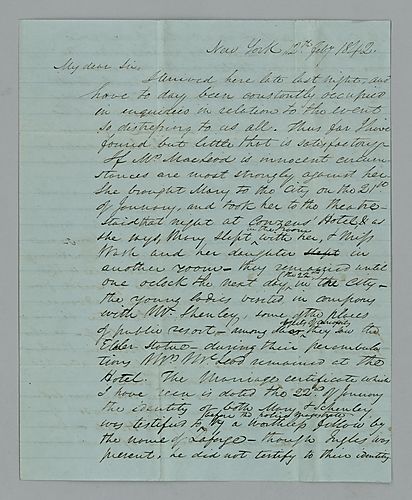 New York 2d Feby 1842.
My dear Sir,
I arrived here late last night, and
have to day been constantly occupied
in enquiries in relation to the event
so distressing to us all. Thus far I have
found but little that is satisfactory.
If Mrs MacLeod is innocent circum
stances are most strongly against her
She brought Mary to the City on the 21st
of January, and took her to the theatre
staid that night at Congress Hotel & as
she says, Mary slept in the room with her, & Miss
and her daughter slept in
another room - they remained until
one oclock the next day, (the 22d) in the City -
the young ladies visited in company
with Mr. Shenley, some of the places
of public resort - among they saw the
Statue - during their perambula
tions Mrs McLeod remained at the
Hotel. The Marriage certificate which
I have seen is dated the 22d. of January
the identity of both Mary & Schenley
was testified to before the by a worthless fellow by
the name of Laforge - though Ingles was
present, he did not testify to their identity